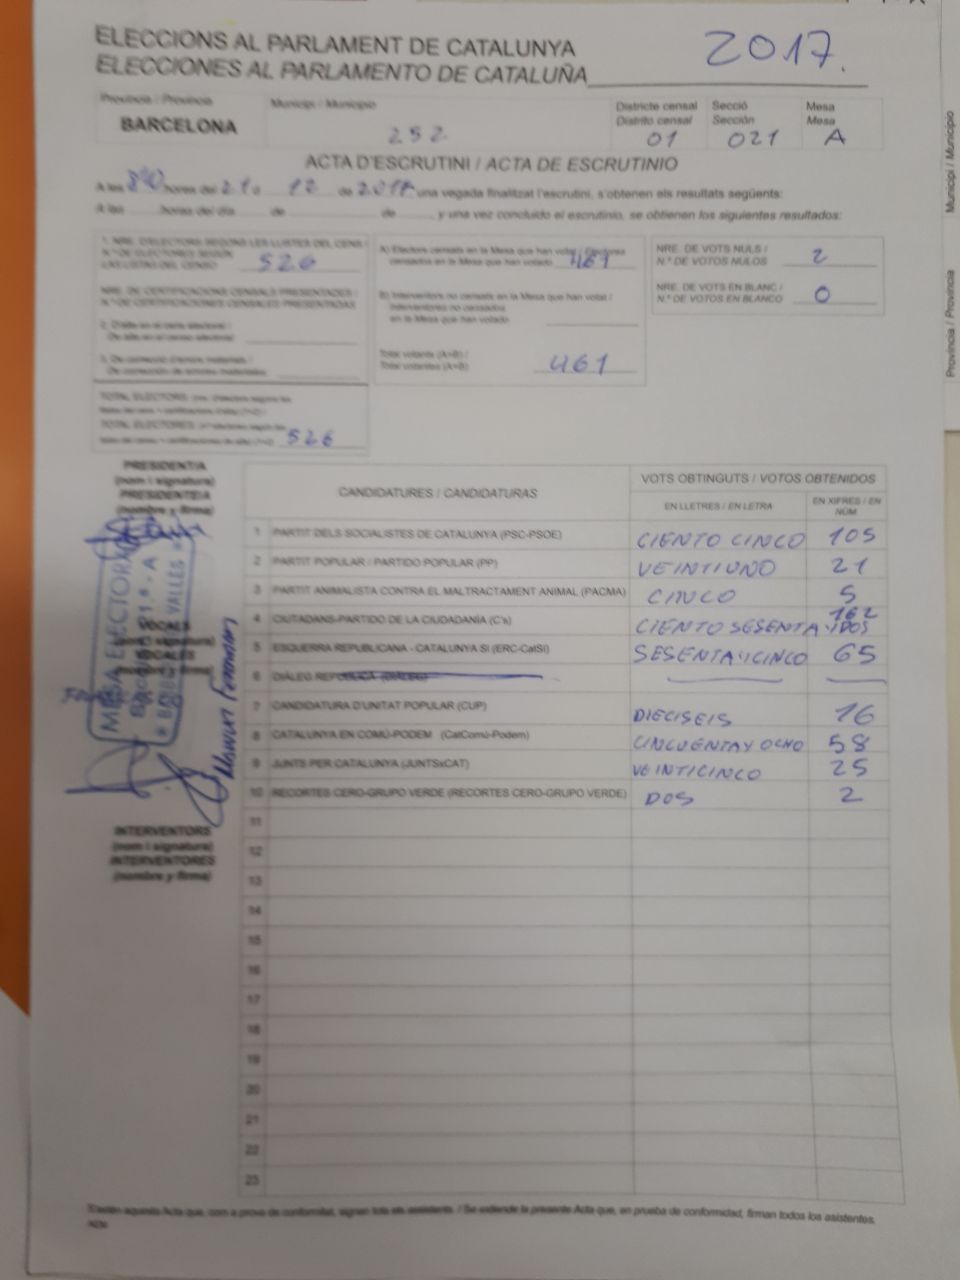 ELECCIONS AL PARLAMENT DE CATALUNYA
ELECCIONES AL PARLAMENTO DE CATALUÑA
2017.
Província / Provincia
BARCELONA
Municipi / Municipio
252
Districte censal
Distrito censal
01
Secció
Sección
021
Mesa
Mesa
A
ACTA D'ESCRUTINI / ACTA DE ESCRUTINIO
A les horas del 21 12 de 2017 una vegada finalitzat l'escrutini, s'obtenen els resultats següents:
A las horas del día de de y una vez concluido el escrutinio, se obtienen los siguientes resultados:
1. NRE. D'ELECTORS SEGONS LES LLISTES DEL CENS /
N.º DE ELECTORES SEGÚN
LAS LISTAS DEL CENSO 526
NRE. DE CERTIFICACIONS CENSALS PRESENTADES /
N.º DE CERTIFICACIONES CENSALES PRESENTADAS
2. D'alta en el cens electoral /
De alta en el censo electoral
3. De correcció d'errors materials /
De corrección de errores materiales
TOTAL ELECTORS:
TOTAL ELECTORES: 526
A) Electors censats en la Mesa que han votat / Electores
censados en la Mesa que han votado 461
B) Interventors no censats en la Mesa que han votat /
Interventores no censados
en la Mesa que han votado
Total votants (A+B) /
Total votantes (A+B) 461
NRE. DE VOTS NULS /
N.º DE VOTOS NULOS 2
NRE. DE VOTS EN BLANC /
N.º DE VOTOS EN BLANCO 0
PRESIDENT/A
(nom i signatura)
PRESIDENTE/A
(nombre y firma)
MESA ELECTORAL
BARBERÀ VALLÈS
VOCALS
(nom i signatura)
VOCALES
(nombre y firma)
INTERVENTORS
(nom i signatura)
INTERVENTORES
(nombre y firma)
CANDIDATURES / CANDIDATURAS
VOTS OBTINGUTS / VOTOS OBTENIDOS
EN LLETRES / EN LETRA
EN XIFRES / EN
NÚM
1 PARTIT DELS SOCIALISTES DE CATALUNYA (PSC-PSOE) CIENTO CINCO 105
2 PARTIT POPULAR / PARTIDO POPULAR (PP) VEINTIUNO 21
3 PARTIT ANIMALISTA CONTRA EL MALTRACTAMENT ANIMAL (PACMA) CINCO 5
4 CIUTADANS-PARTIDO DE LA CIUDADANÍA (C's) CIENTO SESENTA Y DOS 162
5 ESQUERRA REPUBLICANA - CATALUNYA SI (ERC-CatSí) SESENTA Y CINCO 65
6 DIÀLEG REPÚBLICA (DIÀLEG)
7 CANDIDATURA D'UNITAT POPULAR (CUP) DIECISEIS 16
8 CATALUNYA EN COMÚ-PODEM (CatComú-Podem) CINCUENTA Y OCHO 58
9 JUNTS PER CATALUNYA (JUNTSxCAT) VEINTICINCO 25
10 RECORTES CERO-GRUPO VERDE (RECORTES CERO-GRUPO VERDE) DOS 2
11
12
13
14
15
16
17
18
19
20
21
22
23
S'estén aquesta Acta que, com a prova de conformitat, signen tots els assistents. / Se extiende la presente Acta que, en prueba de conformidad, firman todos los asistentes.
Municipi / Municipio
Província / Provincia